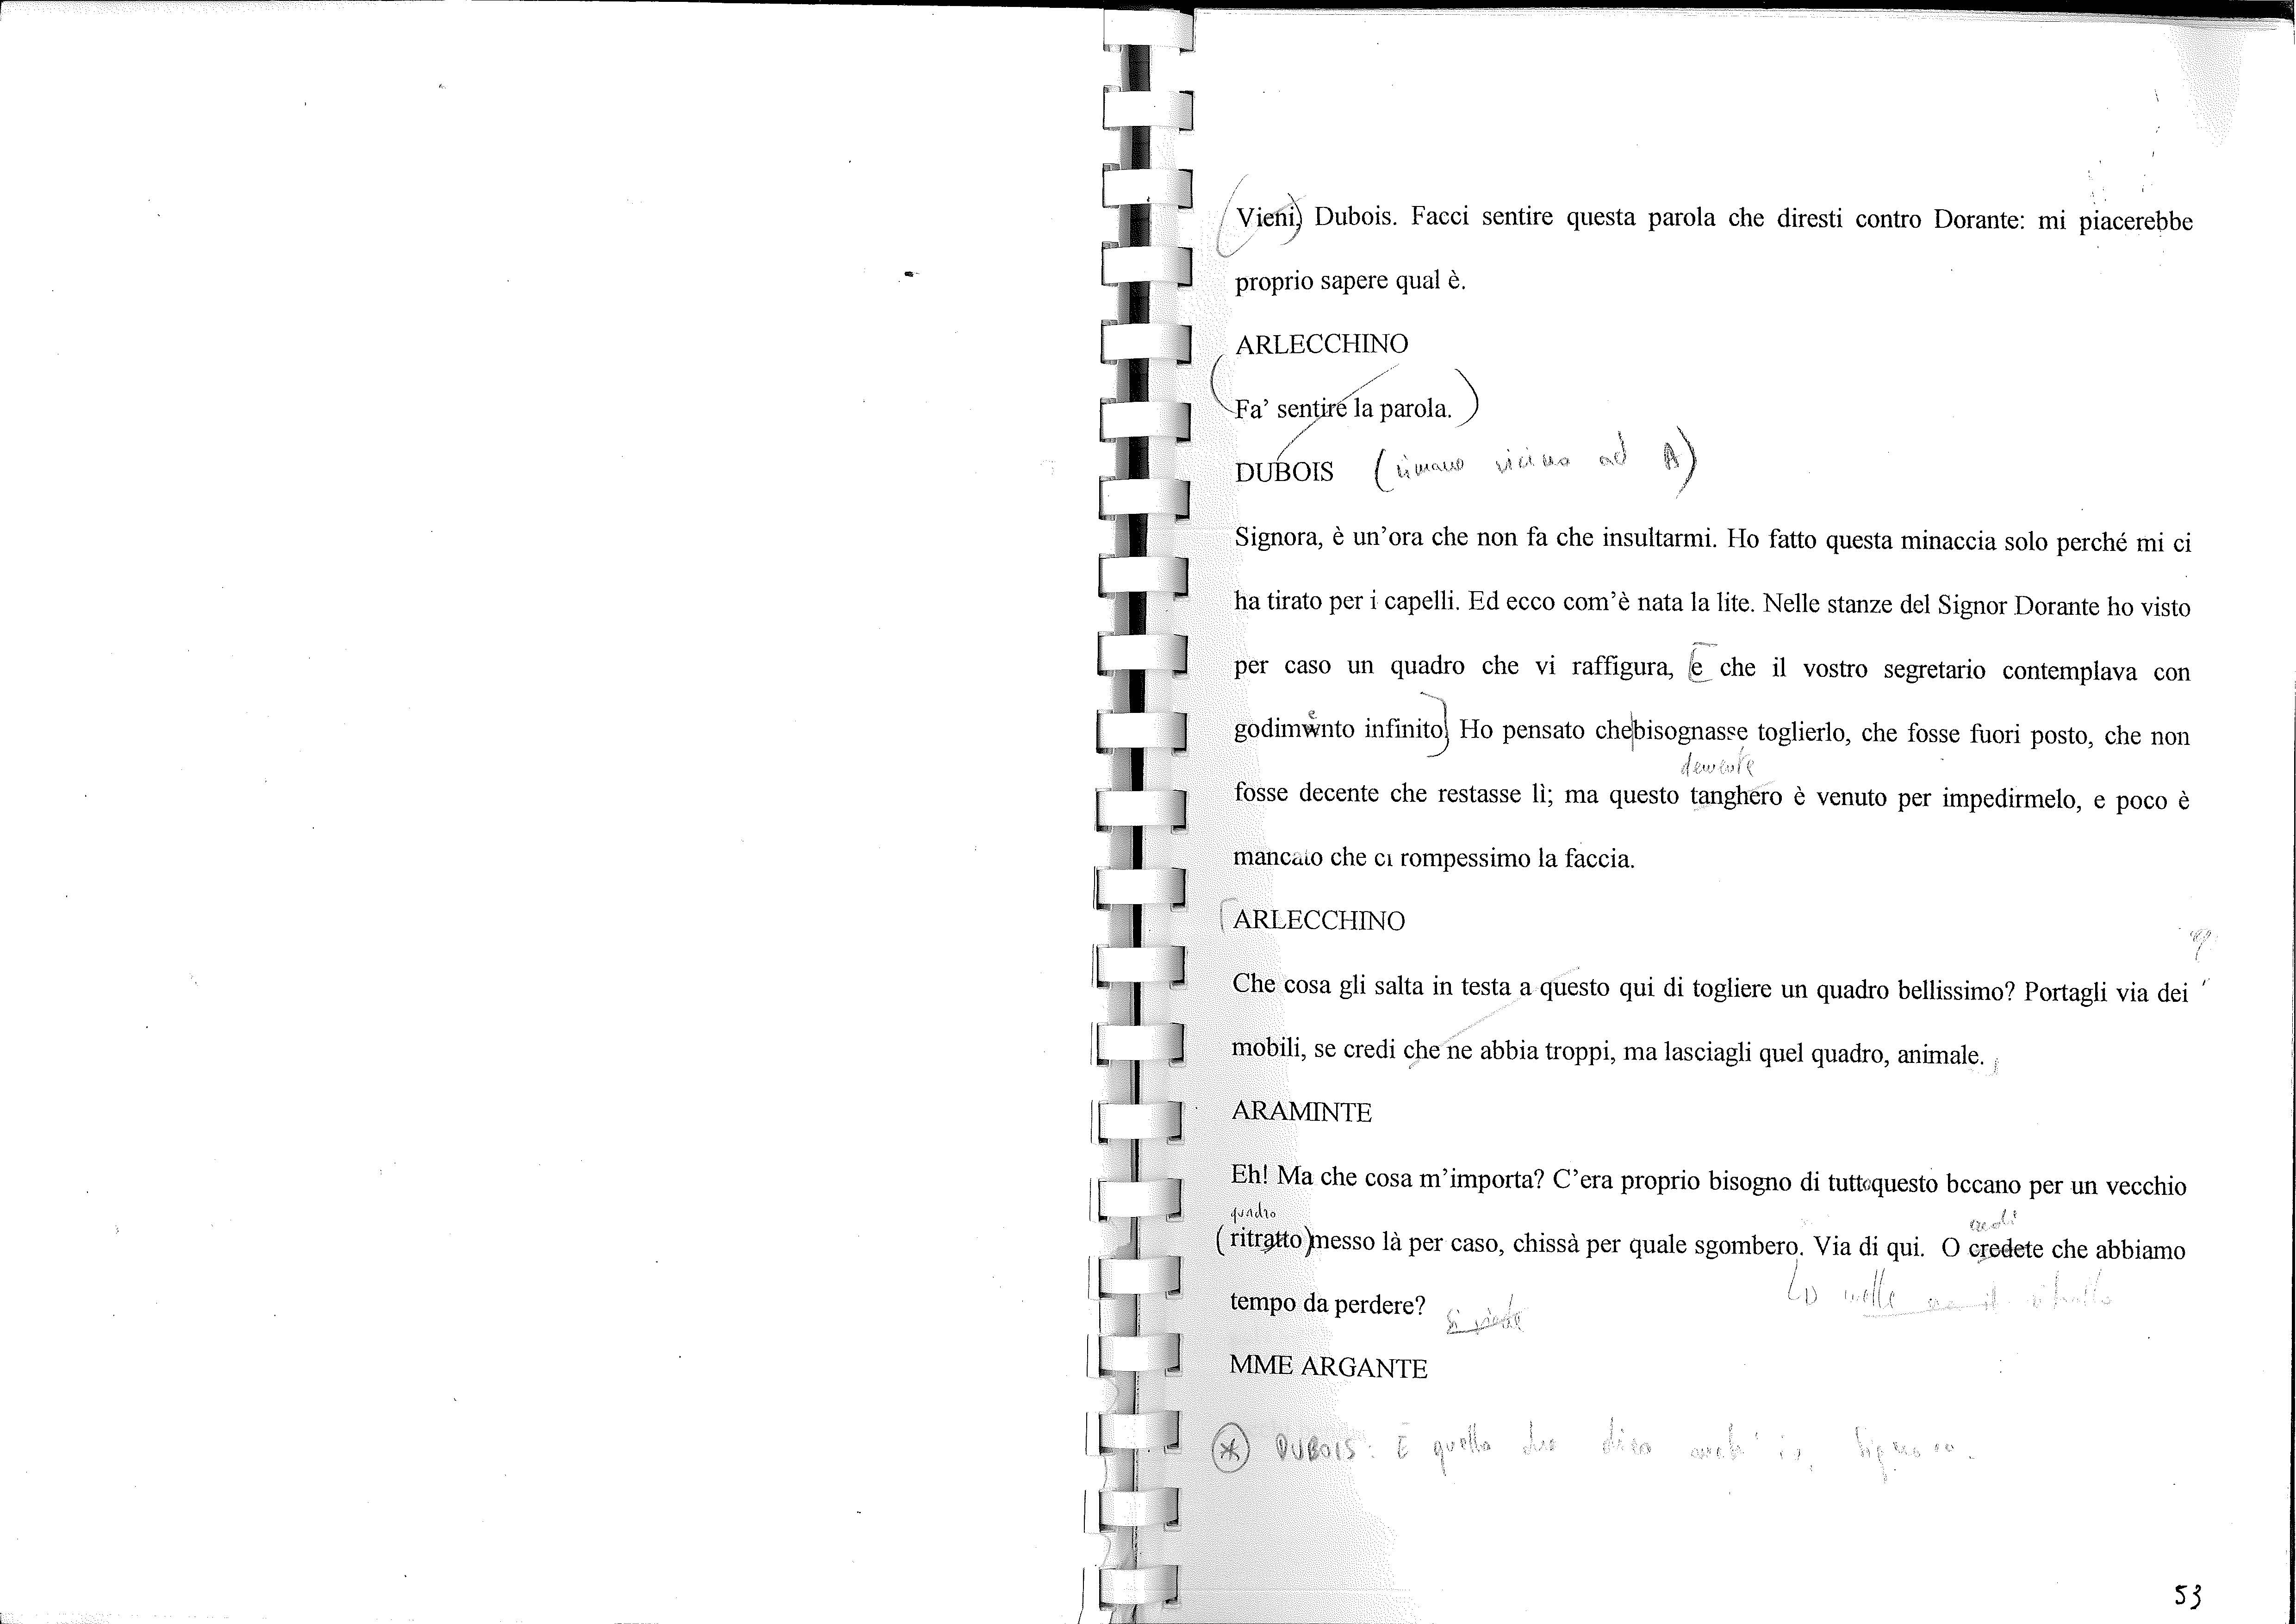 Vieni, Dubois. Facci sentire questa parola che diresti contro Dorante: mi piacerebbe
proprio sapere qual è.
ARLECCHINO
Fa' sentire la parola.
DUBOIS (rimane vicino ad A)
Signora, è un'ora che non fa che insultarmi. Ho fatto questa minaccia solo perché mi ci
ha tirato per i capelli. Ed ecco com'è nata la lite. Nelle stanze del Signor Dorante ho visto
per caso un quadro che vi raffigura, e che il vostro segretario contemplava con
godimento infinito. Ho pensato che bisognasse toglierlo, che fosse fuori posto, che non
demente
fosse decente che restasse lì; ma questo tanghero è venuto per impedirmelo, e poco è
mancato che ci rompessimo la faccia.
ARLECCHINO
Che cosa gli salta in testa a questo qui di togliere un quadro bellissimo? Portagli via dei
mobili, se credi che ne abbia troppi, ma lasciagli quel quadro, animale.
ARAMINTE
Eh! Ma che cosa m'importa? C'era proprio bisogno di tuttoquesto bccano per un vecchio
quadro
credi
(ritratto) messo là per caso, chissà per quale sgombero. Via di qui. O credete che abbiamo
tempo da perdere?
MME ARGANTE
* DUBOIS: È quello che dico anch'io, signora.
53